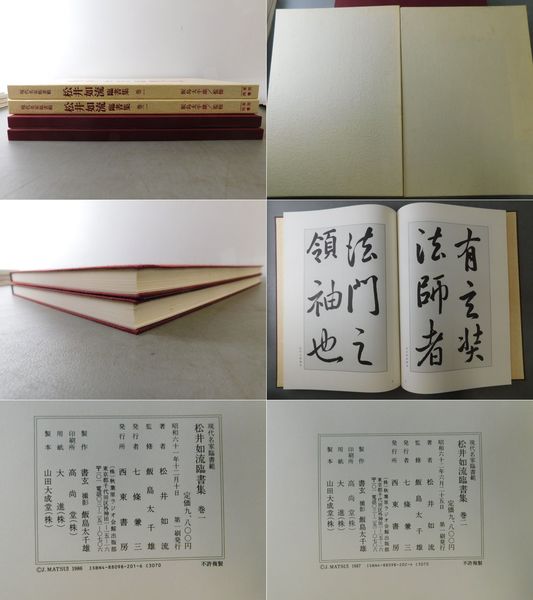 現代名家臨書範 松井如流臨書集 巻一 飯島太千雄/監修
現代名家臨書範 松井如流臨書集 巻二 飯島太千雄/監修
有玄奘
法師者
法門之
領袖也
現代名家臨書範
松井如流臨書集 巻一
定価九、八〇〇円
昭和六十一年十二月十日 第一刷発行
著者 松井如流
監修 飯島太千雄
発行者 七條兼三
発行所 西東書房
製作 書玄 撮影 飯島太千雄
印刷所 高尚堂(株)
用紙 大進(株)
製本 山田大成堂(株)
©J. MATSUI 1986 ISBN4-88098-201-6 C3070 不許複製
現代名家臨書範
松井如流臨書集 巻二
定価九、八〇〇円
昭和六十二年六月二十五日 第一刷発行
著者 松井如流
監修 飯島太千雄
発行者 七條兼三
発行所 西東書房
製作 書玄 撮影 飯島太千雄
印刷所 高尚堂(株)
用紙 大進(株)
製本 山田大成堂(株)
©J. MATSUI 1987 ISBN4-88098-202-4 C3070 不許複製